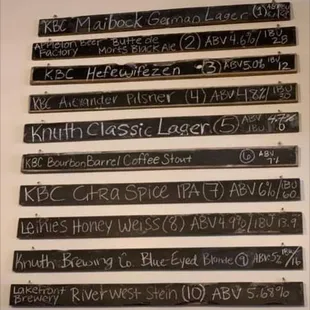 KBC Maibock German Lager (1) ABV
Appleton Beer Factory Butte de Morts Black Ale (2) ABV 4.6% IBU 28
KBC Hefeweifezen (3) ABV 5.0% IBU 12
KBC Alexander Pilsner (4) ABV
Knuth Classic Lager (5) ABV 4.7%
KBC Bourbon Barrel Coffee Stout (6) ABV
KBC Citra Spice IPA (7) ABV 6% IBU 60
Leinies Honey Weiss (8) ABV 4.9% IBU 13.9
Knuth Brewing Co. Blue-Eyed Blonde (9) ABV: 5.2 IBU 16
Lakefront Brewery Riverwest Stein (10) ABV 5.68%